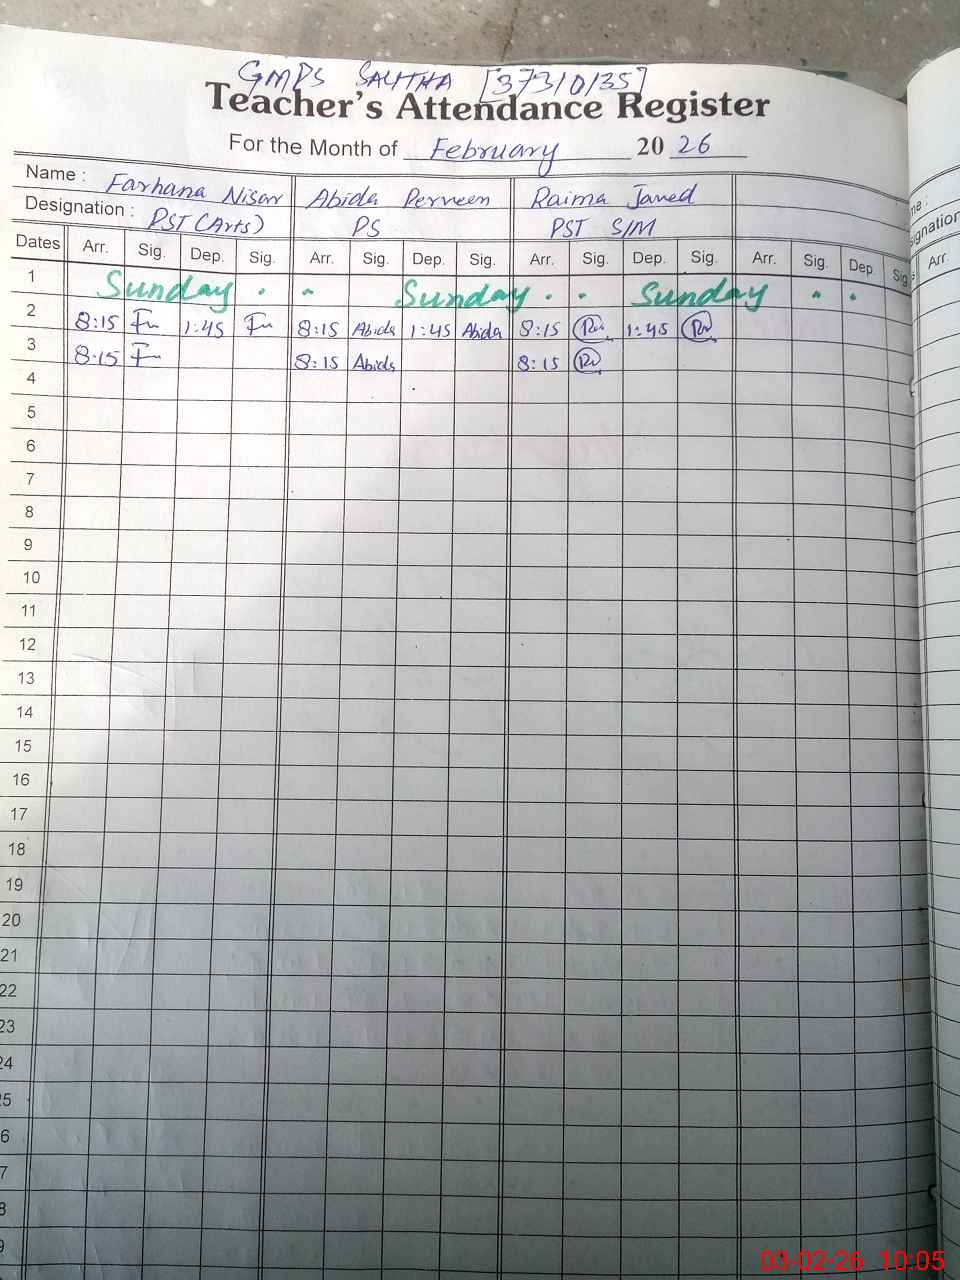 GMPS SALITHA [37310135]
Teacher's Attendance Register
For the Month of February 2026
Name : Farhana Nisar Abida Perveen Raima Javed
Designation : PST (Arts) PS PST S/M
Dates Arr. Sig. Dep. Sig. Arr. Sig. Dep. Sig. Arr. Sig. Dep. Sig. Arr. Sig. Dep. Sig
1 Sunday Sunday Sunday
2 8:15 1:45 8:15 Abida 1:45 Abida 8:15 1:45
3 8:15 8:15 Abida 8:15
4
5
6
7
8
9
10
11
12
13
14
15
16
17
18
19
20
21
22
23
24
25
6
7
8
9
me :
signation
Arr.
03-02-26 10:05